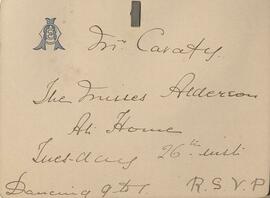 Mr Cavafy.
The Misses Alderson
At Home
Tuesday 26th inst
Dancing 9 to 1. R.S.V.P